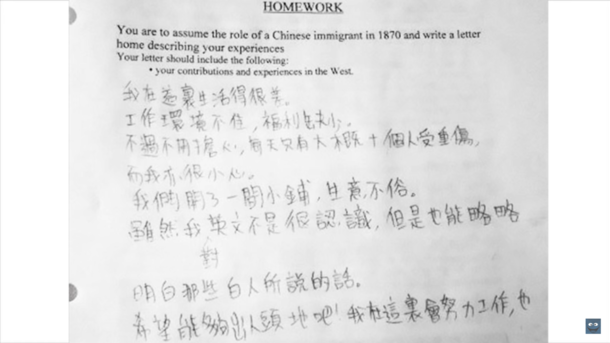 HOMEWORK
You are to assume the role of a Chinese immigrant in 1870 and write a letter
home describing your experiences
Your letter should include the following:
• your contributions and experiences in the West.
我在這裏生活得很差。
工作環境不佳，福利缺少。
不過不用擔心，每天只有大概十個人受重傷，
而我亦很小心。
我們開了一間小鋪，生意不俗。
雖然我英文不是很認識，但是也能略略
對
明白那些白人所說的話。
希望能夠出人頭地吧！我在這裏會努力工作，也